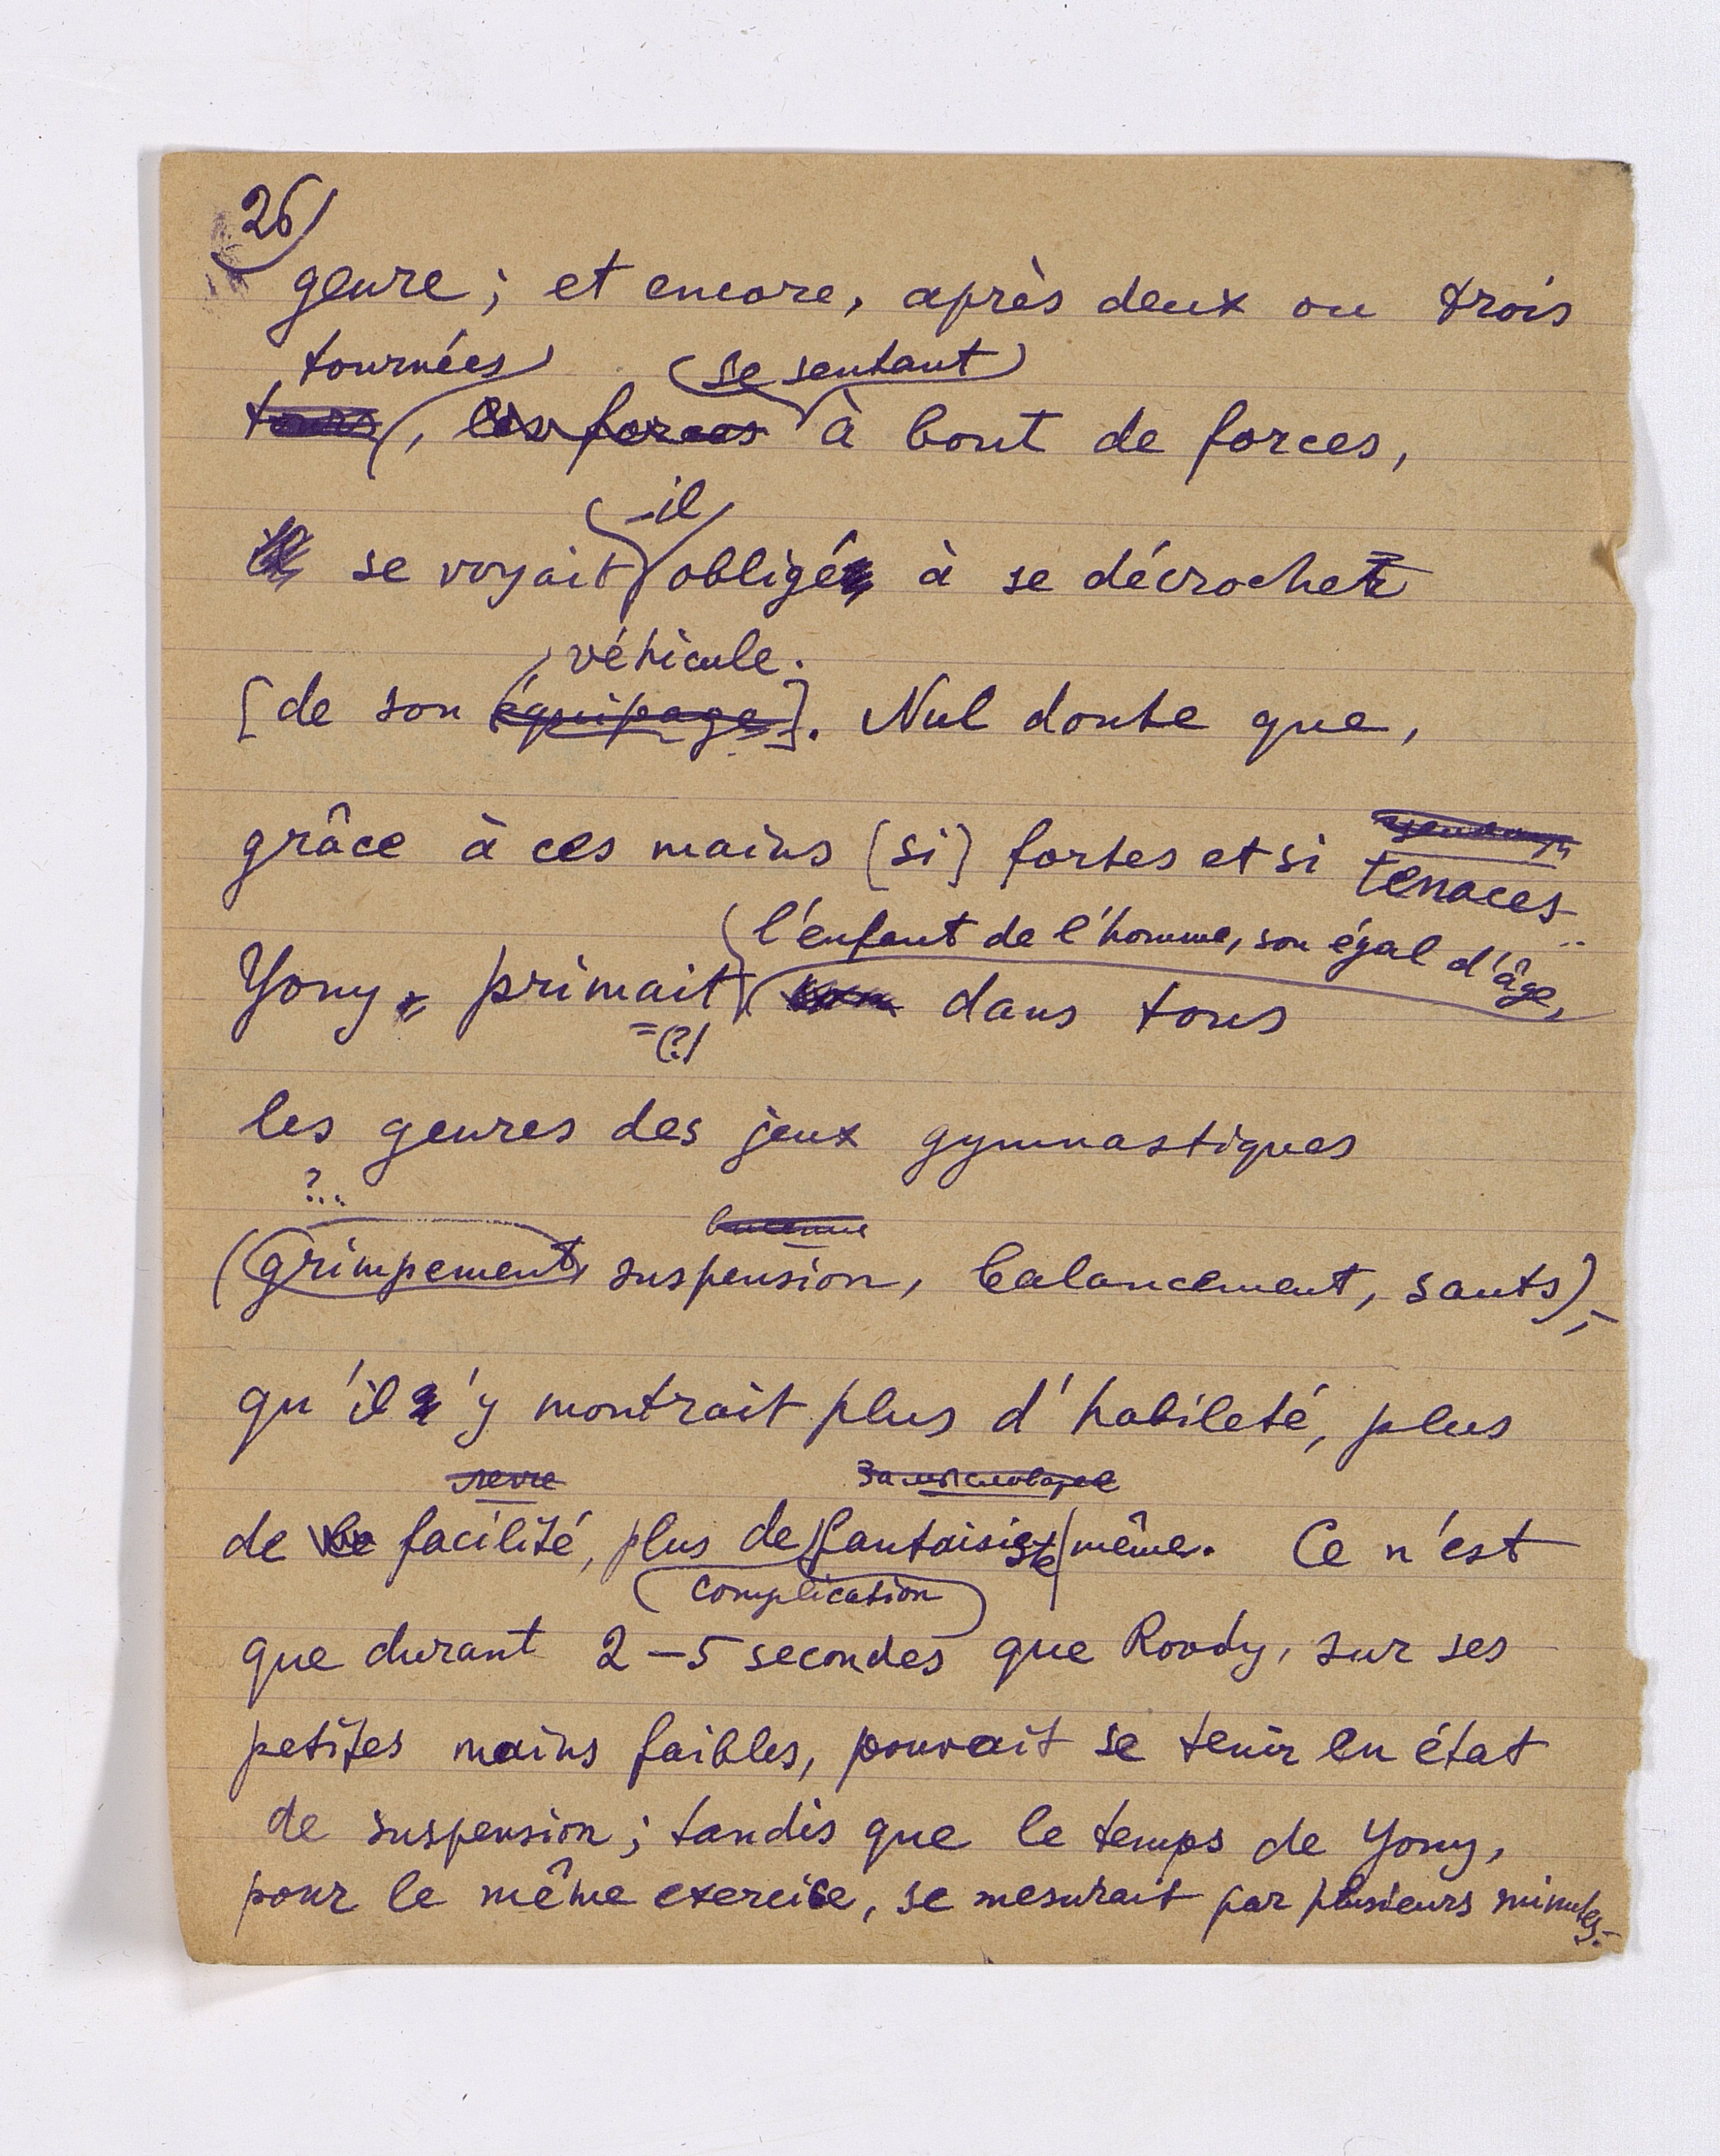 26)
genre; et encore, après deux ou trois
tournées se sentant
tours, les forces à bout de forces,
-il
se voyait obligé à se décrocher
véhicule.
[de son équipage]. Nul doute que,
grâce à ces mains [si] fortes et si
tenaces
l'enfant de l'homme, son égal d'âge,
Yony, primait dans tous
=(?)
les genres des jeux gymnastiques
?..
(grimpement, suspension, balancement, sauts),-
qu'il s'y montrait plus d'habileté, plus
de facilité, plus de fantaisie même. Ce n'est
complication
que durant 2-5 secondes que Roody, sur ses
petites mains faibles, pouvait se tenir en état
de suspension; tandis que le temps de Yony,
pour le même exercice, se mesurait par plusieurs minutes.-